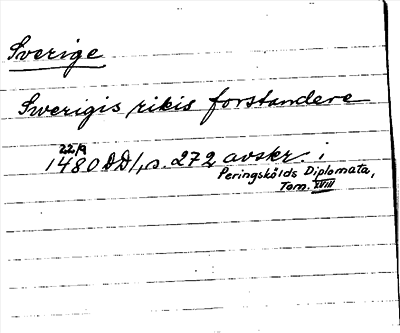 Sverige
Swerigis rikis forstandere
22/9
1480 DD 1, s. 272 avskr. i
Peringskölds Diplomata,
Tom. XVIII